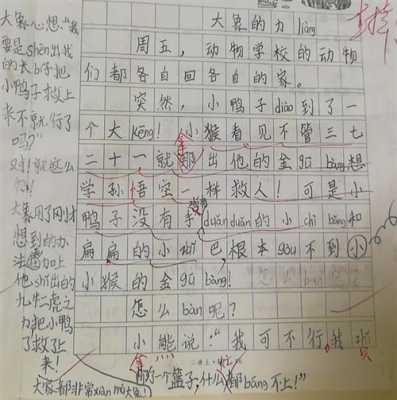 大象的力liàng
周五，动物学校的动物
们都各自回各自的家。
突然，小鸭子diào到了一
个大kēng！小猴看见不管三七
二十一就拿出他的金gū bàng想
学孙悟空一样救人！可是小
鸭子没有手duǎnduǎn的小chì bǎng和
扁扁的小嘴巴根本gòu不到小
小猴的金gū bàng！
怎么bàn呢？
小熊说：“我可不行，我
的一个篮子，什么都bāng不上！”
大象心想：“我
要是shēn出我
的长bí子把
小鸭子救上
来不就行了
吗？”
对！就这么
大象用了刚才
想到的办
法，加上
他shǐ出的
九牛二虎之
力把小鸭
子救了上
来！
大家都非常xiàn mù大象！